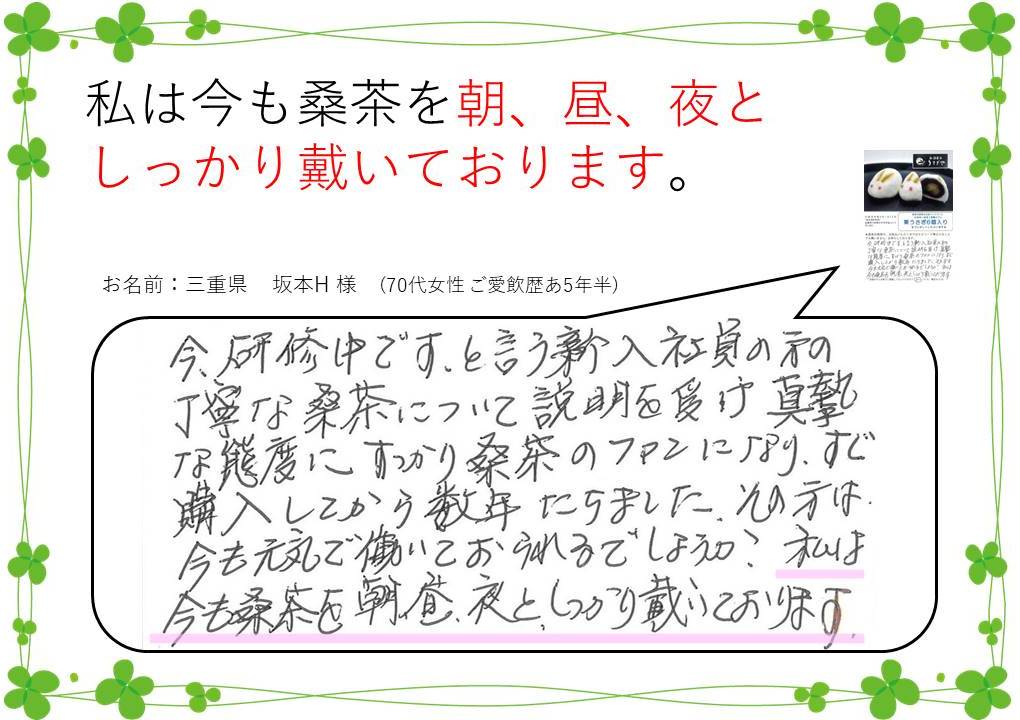 私は今も桑茶を朝、昼、夜と
しっかり戴いております。
お名前：三重県　坂本H 様　(70代女性 ご愛飲歴あ5年半)
今、研修中です、と言う新入社員の方の
丁寧な桑茶について説明を受け真摯
な態度にすっかり桑茶のファンになり、すぐ
購入してから数年たちました、その方は
今も元気で働いておられるでしょうか? 私は
今も桑茶を朝、昼、夜と、しっかり戴いております。
栗うさぎ6個入り